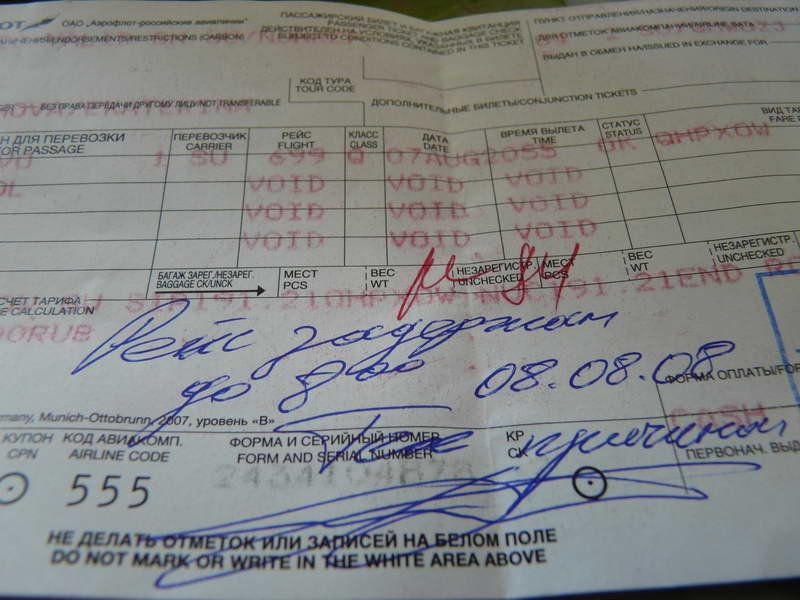 ОТ ОАО „Аэрофлот-российские авиалинии"
ENDORSEMENTS/RESTRICTIONS (CARBON)
ПАССАЖИРСКИЙ БИЛЕТ И БАГАЖНАЯ КВИТАНЦИЯ
PASSENGER TICKET AND BAGGAGE CHECK
ДЕЙСТВИТЕЛЕН НА УСЛОВИЯХ, УКАЗАННЫХ В БИЛЕТЕ
SUBJECT TO CONDITIONS CONTAINED IN THIS TICKET
ПУНКТ ОТПРАВЛЕНИЯ/НАЗНАЧЕНИЯ/ORIGIN DESTINATION
ДЛЯ ОТМЕТОК АВИАКОМПАНИИ/AIRLINE DATA
ВЫДАН В ОБМЕН НА/ISSUED IN EXCHANGE FOR
КОД ТУРА
TOUR CODE
БЕЗ ПРАВА ПЕРЕДАЧИ ДРУГОМУ ЛИЦУ/NOT TRANSFERABLE
ДОПОЛНИТЕЛЬНЫЕ БИЛЕТЫ/CONJUNCTION TICKETS
Н ДЛЯ ПЕРЕВОЗКИ ПЕРЕВОЗЧИК РЕЙС КЛАСС ДАТА ВРЕМЯ ВЫЛЕТА СТАТУС ВИД ТА
OR PASSAGE CARRIER FLIGHT CLASS DATE TIME STATUS FARE
SU 699 Q 07AUG2055 OK QHPXOW
VOID VOID VOID
VOID VOID VOID
VOID VOID VOID
БАГАЖ ЗАРЕГ./НЕЗАРЕГ. МЕСТ ВЕС НЕЗАРЕГИСТР. МЕСТ ВЕС НЕЗАРЕГИСТР.
BAGGAGE CK/UNCK PCS WT UNCHECKED PCS WT UNCHECKED
СЧЕТ ТАРИФА
E CALCULATION
Рейс задержан
до 8⁰⁰ 08.08.08
ФОРМА ОПЛАТЫ/FOR
CASH
many, Munich-Ottobrunn, 2007, уровень «В»
КУПОН КОД АВИАКОМП. ФОРМА И СЕРИЙНЫЙ НОМЕР КР
CPN AIRLINE CODE FORM AND SERIAL NUMBER СК
причинам
ПЕРВОНАЧ. ВЫД
555
НЕ ДЕЛАТЬ ОТМЕТОК ИЛИ ЗАПИСЕЙ НА БЕЛОМ ПОЛЕ
DO NOT MARK OR WRITE IN THE WHITE AREA ABOVE